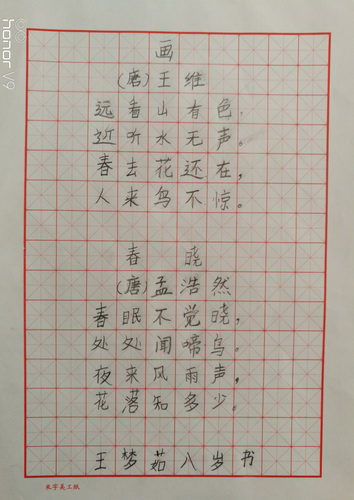 画
(唐)王维
远看山有色.
近听水无声。
春去花还在,
人来鸟不惊。
春晓
(唐)孟浩然
春眠不觉晓,
处处闻啼鸟。
夜来风雨声,
花落知多少。
王梦茹八岁书
米字美工纸
honor V9